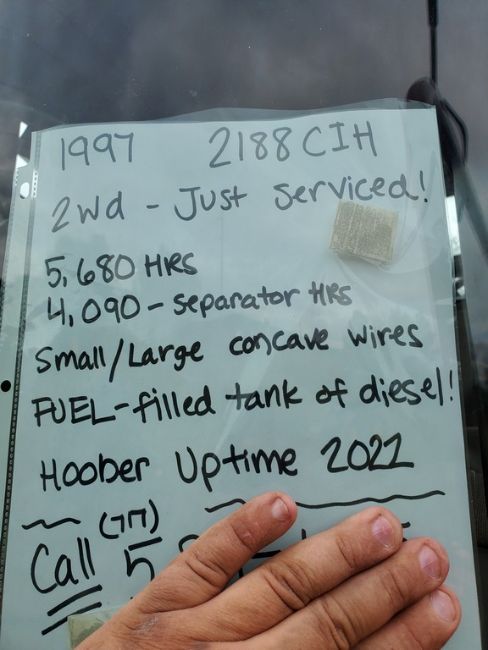 1997 2188 CIH
2wd - Just serviced!
5,680 HRS
4,090 - separator HRS
small/Large concave wires
FUEL-filled tank of diesel!
Hoober Uptime 2022
(717)
Call 5